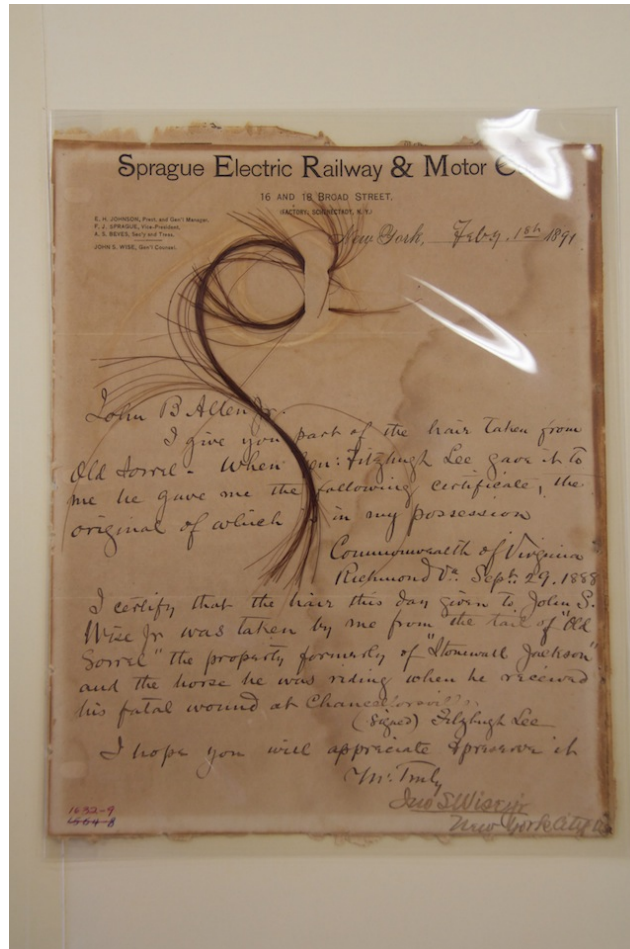 Sprague Electric Railway & Motor
16 AND 18 BROAD STREET.
(FACTORY, SCHENECTADY, N.Y.)
E. H. JOHNSON, Prest. and Gen'l Manager.
F. J. SPRAGUE, Vice-President.
A. S. BEVES, Sec'y and Treas.
JOHN S. WISE, Gen'l Counsel.
New York, Feby. 1st 1891
John B Allen Jr.
I give you part of the hair taken from
Old Sorrel - When Gen: Fitzhugh Lee gave it to
me he gave me the following certificate, the
original of which is in my possession
Commonwealth of Virginia
Richmond Va. Sept. 29. 1888
I certify that the hair this day given to John S.
Wise Jr was taken by me from the tail of "Old
Sorrel" the property formerly of "Stonewall Jackson"
and the horse he was riding when he received
his fatal wound at Chancellorsville.
(Signed) Fitzhugh Lee
I hope you will appreciate & preserve it
Yrs. Truly
Jno S Wise Jr
New York City
1632-9